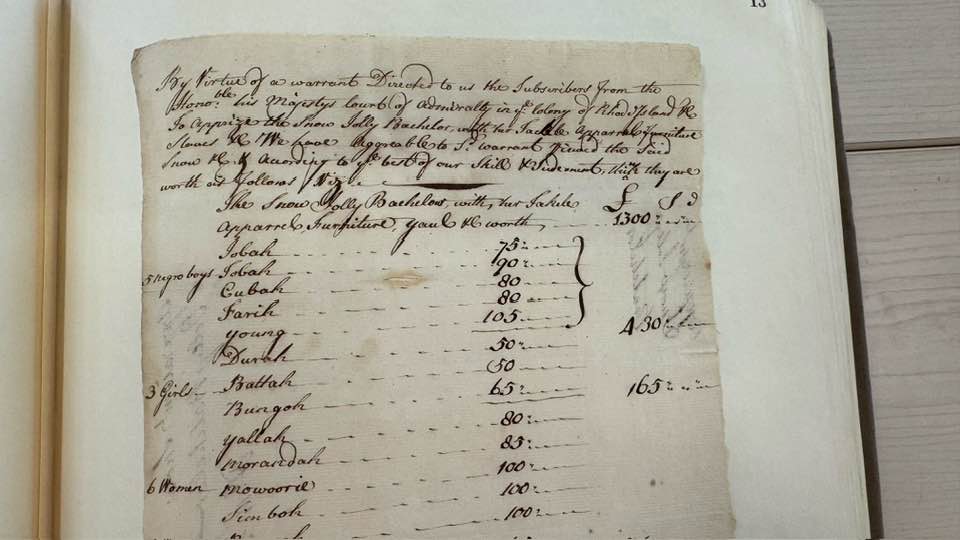 13
By Virtue of a warrant Directed to us the Subscribers from the
Honor.ble his Majestys Court of Admiralty in ye Colony of Rhod Island &c
To Apprize the Snow Jolly Bachelor, with her Tackle Apparrel furniture
Stores &c We have Aggreable to Sd warrant Viewed the Said
Snow &c & According to ye best of our Skill & Judement, think they are
worth as Follows Viz
The Snow Jolly Bachelor, with, her Takile £ S d
Apparrel, Furniture, yaul &c worth 1300
Jobah 75
5 Negro boys Jobah 90
Cubah 80
Farih 80
young 105 430
Durah 50
3 Girls Battah 50
Bungoh 65 165
yallah 80
Morandah 85
6 Woman Mowoorie 100
Simboh 100
100